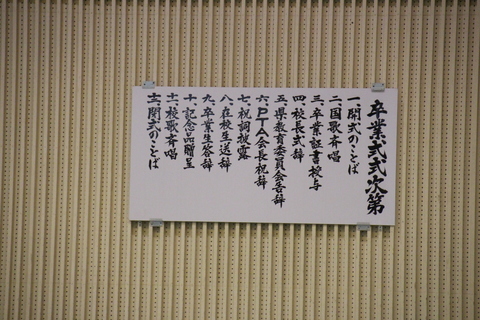 卒業式式次第
一、開式のことば
二、国歌斉唱
三、卒業証書授与
四、校長式辞
五、県教育委員会告辞
六、PTA会長祝辞
七、祝詞披露
八、在校生送辞
九、卒業生答辞
十、記念品贈呈
十一、校歌斉唱
十二、閉式のことば